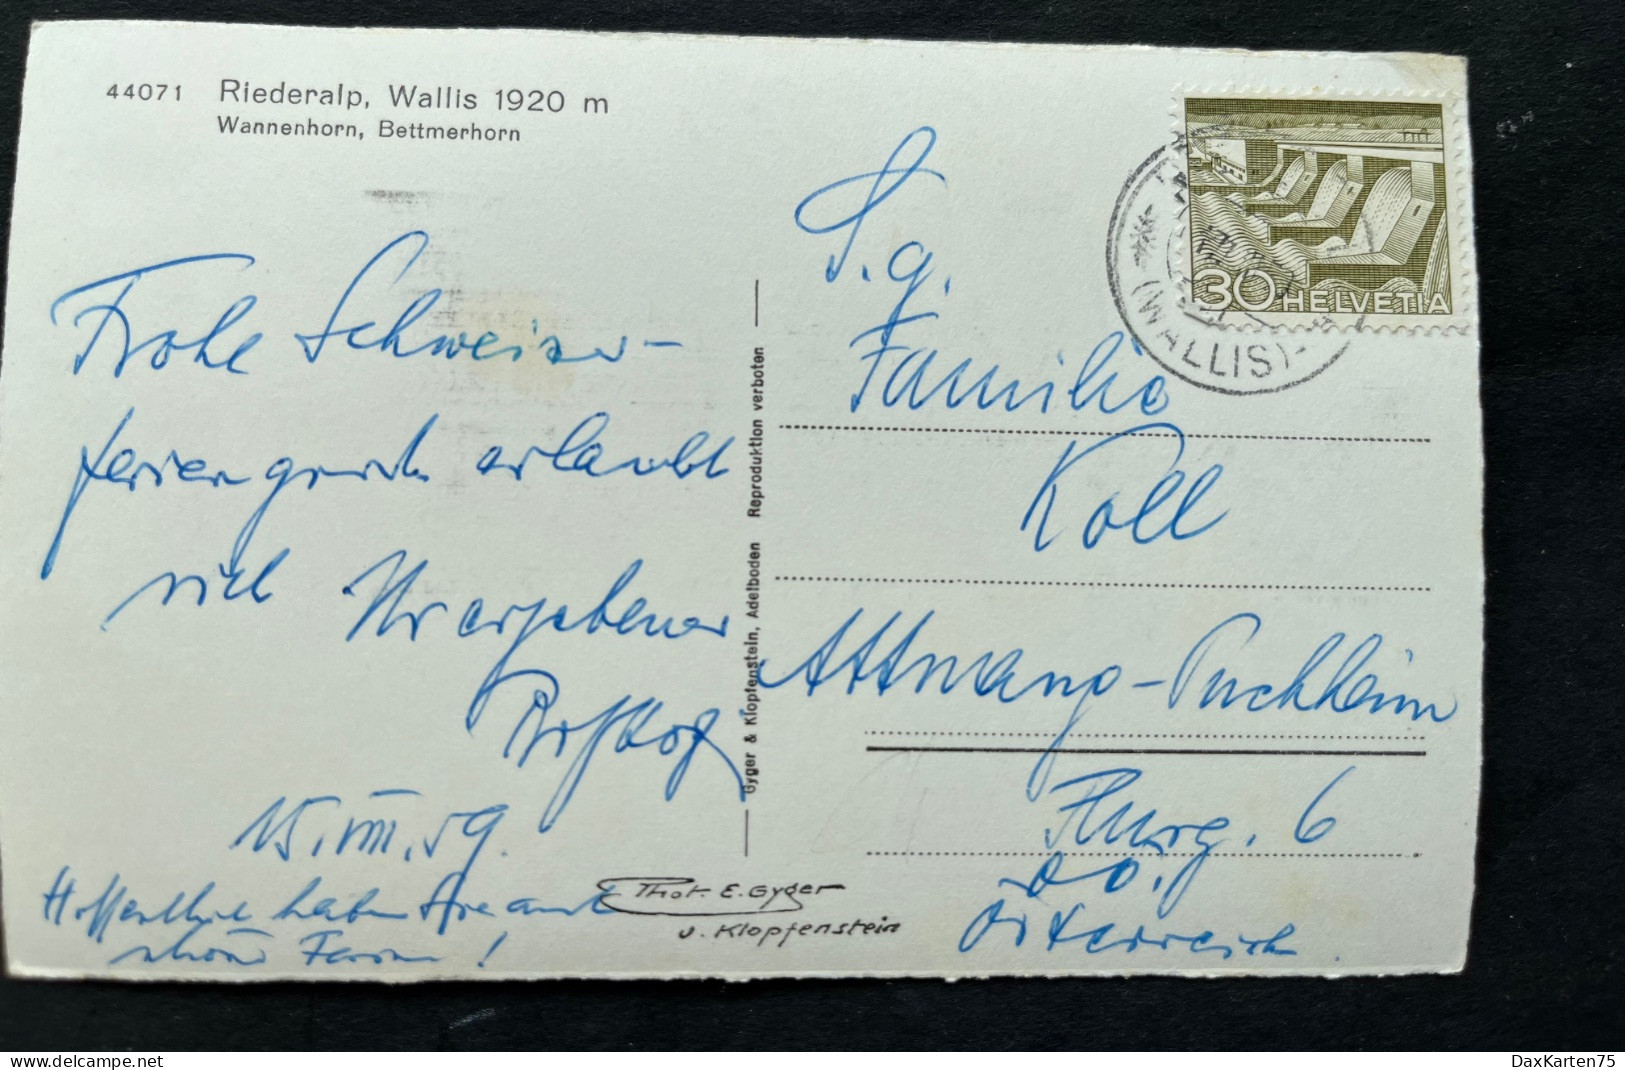 44071 Riederalp, Wallis 1920 m
Wannenhorn, Bettmerhorn
Frohe Schweizer-
feriengrüsse erlaubt
sich Ihr ergebener
15. VIII. 59.
Hoffentlich haben Sie auch
schöne Ferien!
Gyger & Klopfenstein, Adelboden Reproduktion verboten
Phot. E. Gyger
u. Klopfenstein
30 HELVETIA
(WALLIS)
S. g.
Familie
Koll
Attnang-Puchheim
6
OÖ.
Österreich.
DaxKarten75